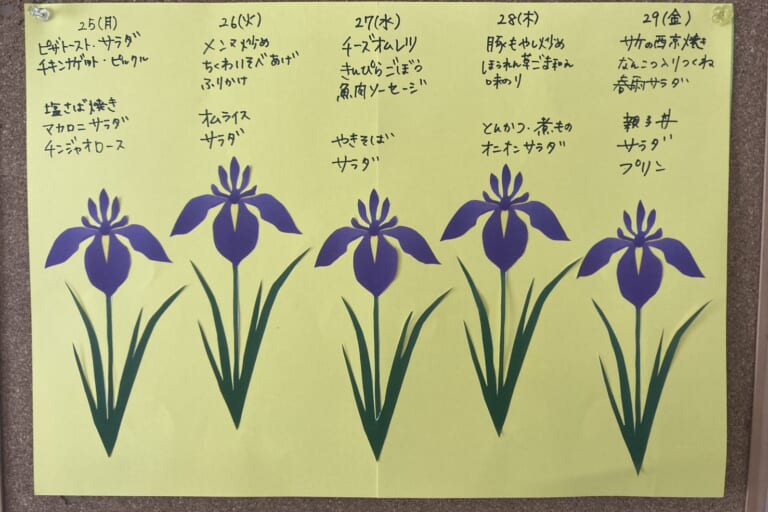 25(月)
ピザトースト・サラダ
チキンナゲット・ピックル
塩さば焼き
マカロニサラダ
チンジャオロース
26(火)
メンマ炒め
ちくわいそべあげ
ふりかけ
オムライス
サラダ
27(水)
チーズオムレツ
きんぴらごぼう
魚肉ソーセージ
やきそば
サラダ
28(木)
豚もやし炒め
ほうれん草ごま和え
味のり
とんかつ・煮もの
オニオンサラダ
29(金)
サケの西京焼き
なんこつ入りつくね
春雨サラダ
親子丼
サラダ
プリン